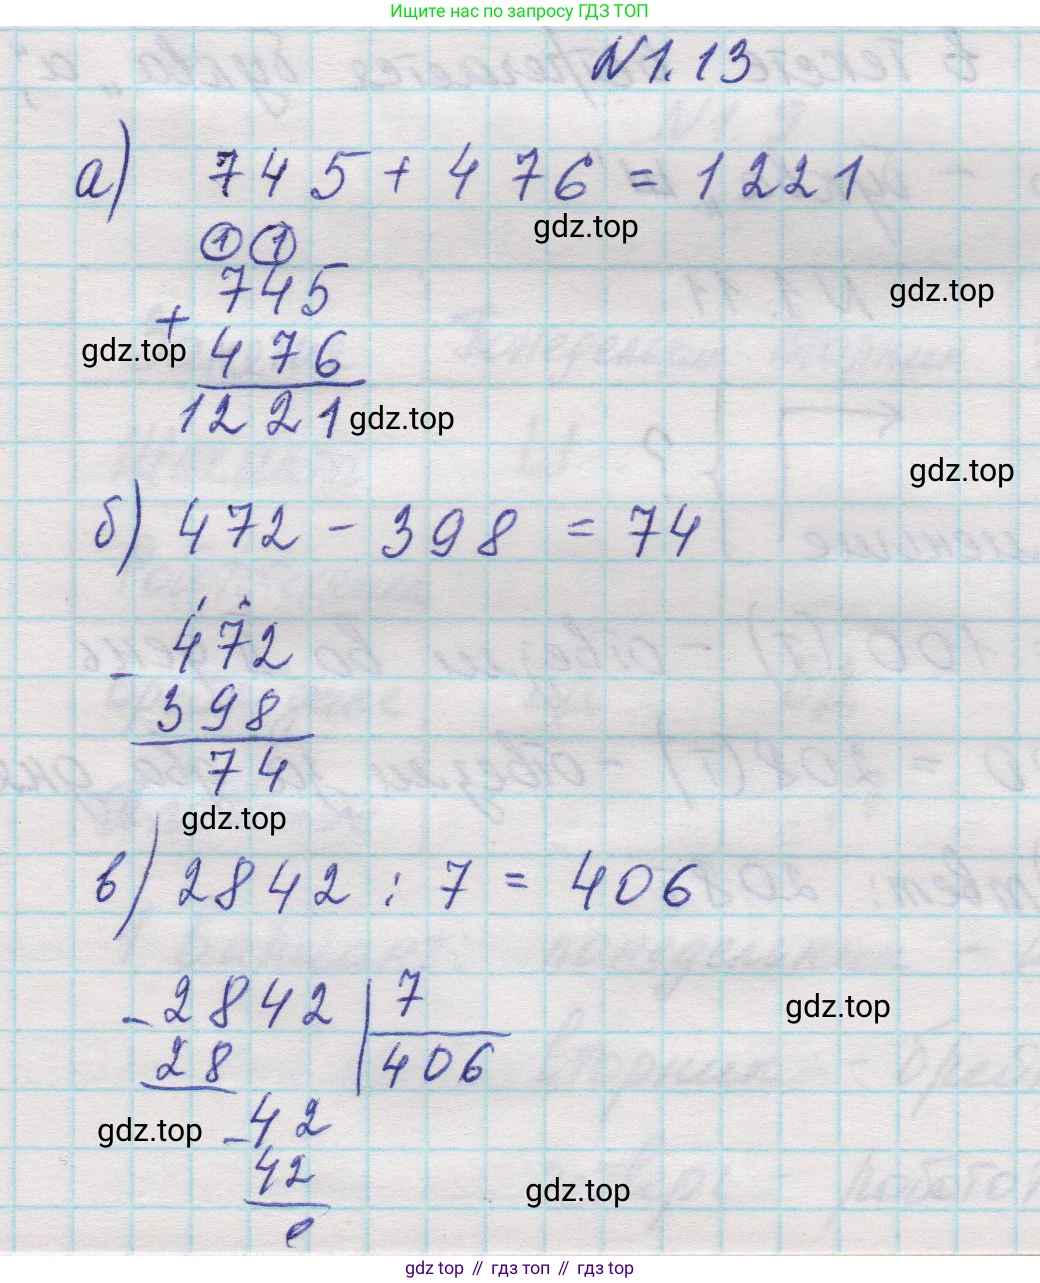 Ищите нас по запросу ГДЗ ТОП
N1.13
а) 745 + 476 = 1221
gdz.top
1 1
gdz.top
745
+
gdz.top 476
1221 gdz.top
gdz.top
б) 472 - 398 = 74
472
-
398
74
gdz.top
в) 2842 : 7 = 406
- 2842 7
gdz.top
28 406
gdz.top - 42
42
gdz.top
0
gdz top // гдз топ // gdz top